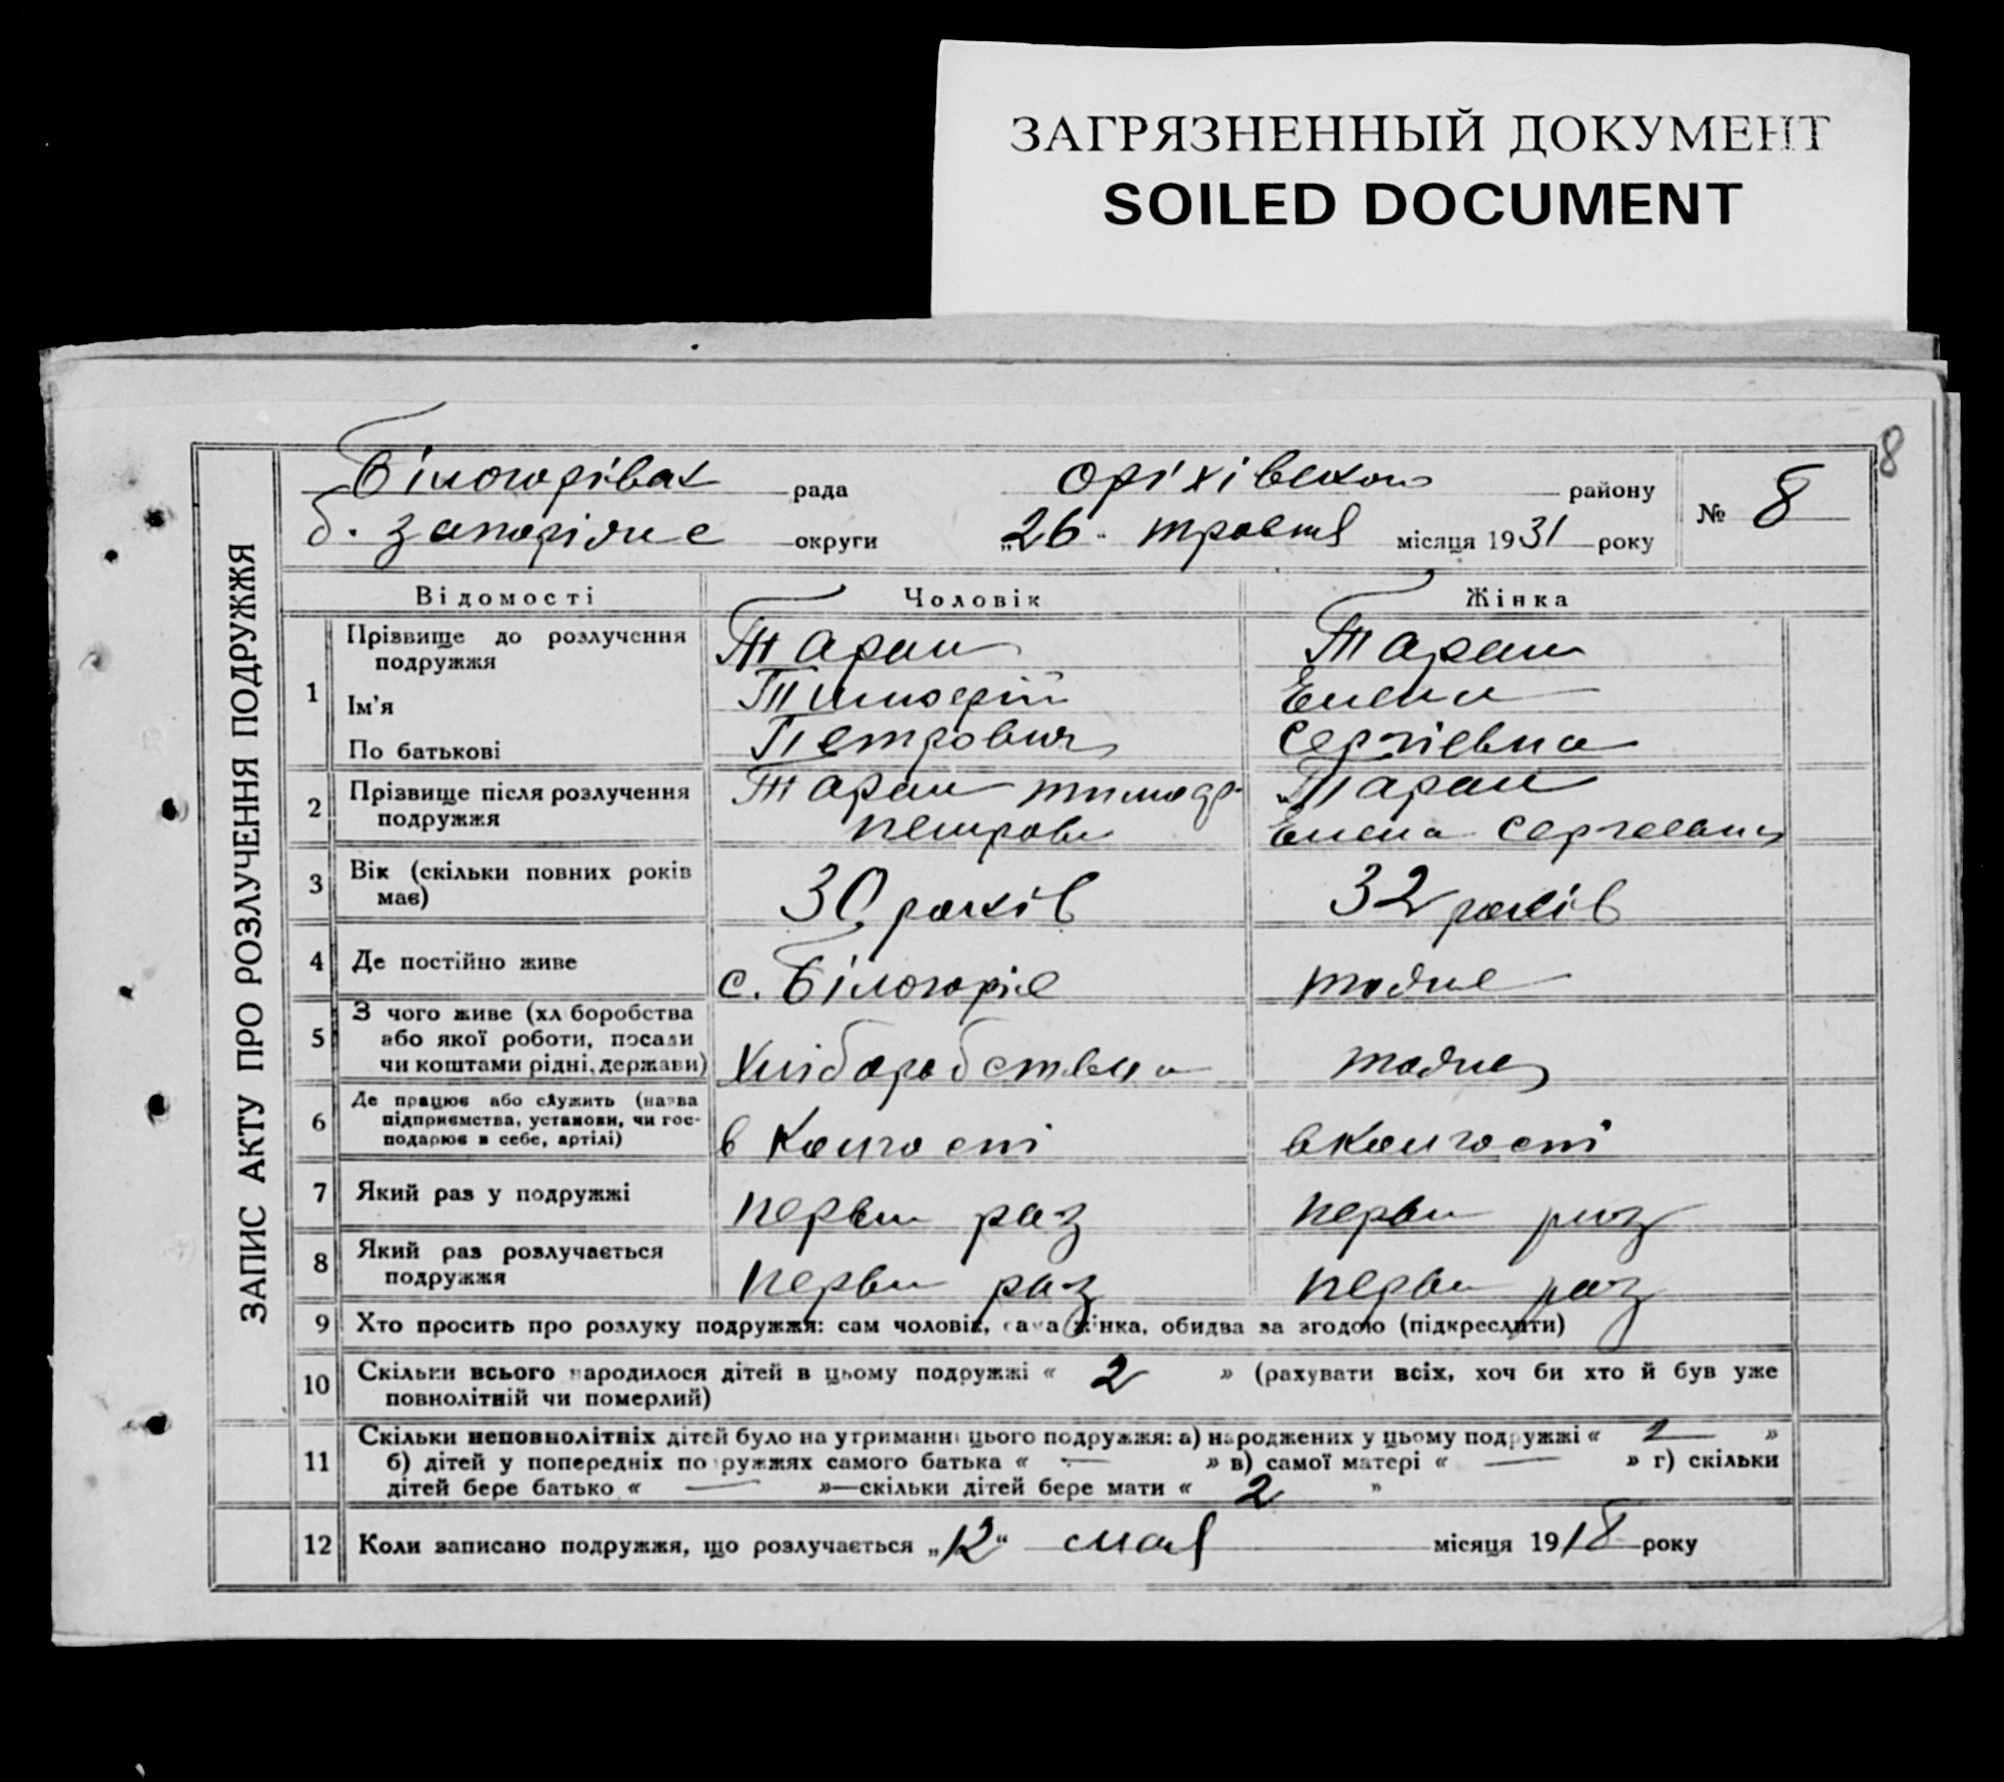 ЗАГРЯЗНЕННЫЙ ДОКУМЕНТ
SOILED DOCUMENT
8
ЗАПИС АКТУ ПРО РОЗЛУЧЕННЯ ПОДРУЖЖЯ
рада Оріхівського району
б. Запоріжже округи „26“ травня місяця 1931 року
№ 8
Відомості Чоловік Жінка
1 Прізвище до розлучення подружжя Таран Таран
Ім'я Тимофій Елена
По батькові Петрович Сергіевна
2 Прізвище після розлучення Таран Тимоф. Таран
подружжя Петрови Елена Сергеевна
3 Вік (скільки повних років має) 30 років 32 років
4 Де постійно живе с. Білогоріе тодже
5 З чого живе (хл боробства
або якої роботи, посади
чи коштами рідні, держави) Хліборобства тодже
6 Де працює або служить (назва
підприємства, установи, чи гос-
подарює в себе, артілі) в Колгоспі в Колгоспі
7 Який раз у подружжі перви раз перви раз
8 Який раз розлучається
подружжя перви раз перви раз
9 Хто просить про розлуку подружжя: сам чоловік, сама жінка, обидва за згодою (підкреслити)
10 Скільки всього народилося дітей в цьому подружжі « 2 » (рахувати всіх, хоч би хто й був уже
повнолітній чи померлий)
11 Скільки неповнолітніх дітей було на утриманні цього подружжя: а) народжених у цьому подружжі « 2 »
б) дітей у попередніх подружжях самого батька « — » в) самої матері « — » г) скільки
дітей бере батько « — »—скільки дітей бере мати « 2 »
12 Коли записано подружжя, що розлучається „12“ мая місяця 1918 року